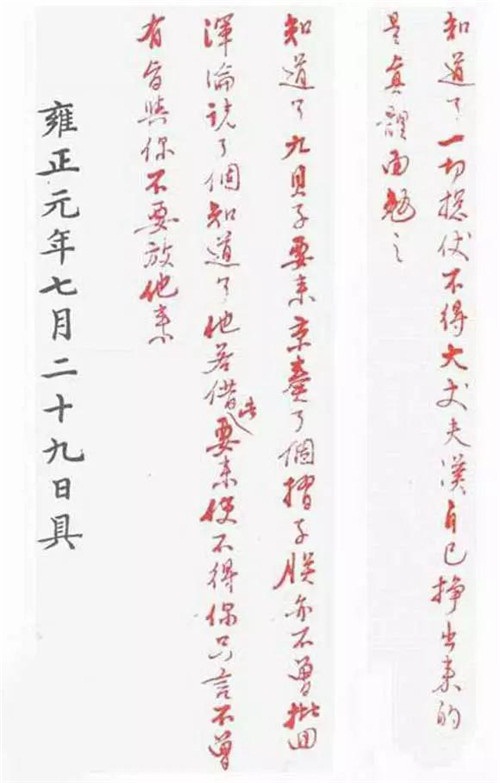 知道了一切捴仗不得大丈夫漢自己掙出来的
是真體面勉之
知道了九貝子要来京奏了個摺子朕亦不曾批回
渾淪說了個知道了他若借此要来使不得你只言不曾
有旨與你不要放他来
雍正元年七月二十九日具